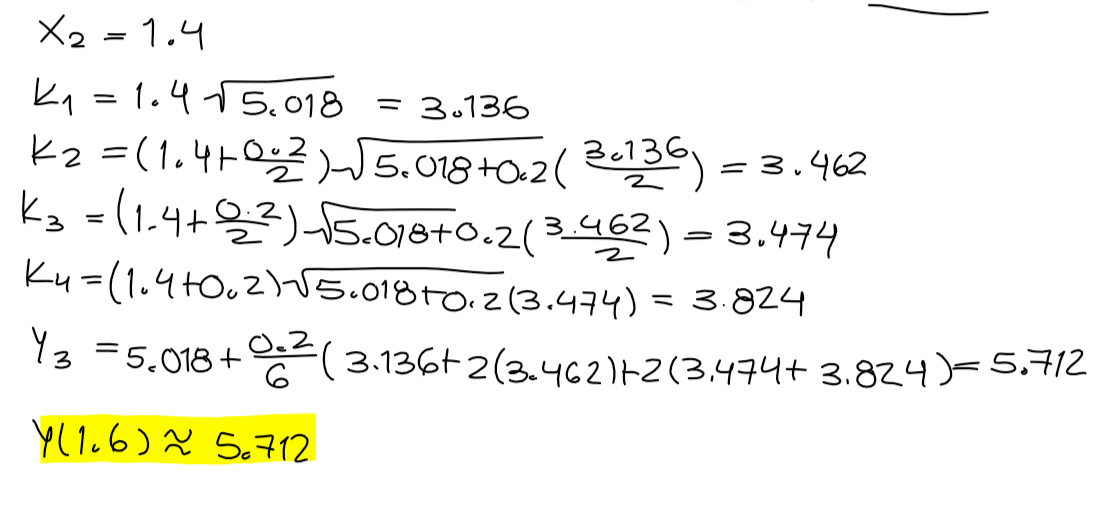 X₂ = 1.4
K₁ = 1.4 √5.018 = 3.136
K₂ = (1.4+0.2/2)√5.018+0.2(3.136/2) = 3.462
K₃ = (1.4+0.2/2)√5.018+0.2(3.462/2) = 3.474
K₄ = (1.4+0.2)√5.018+0.2(3.474) = 3.824
Y₃ = 5.018+0.2/6(3.136+2(3.462)+2(3.474+3.824) = 5.712
Y(1.6) ≈ 5.712